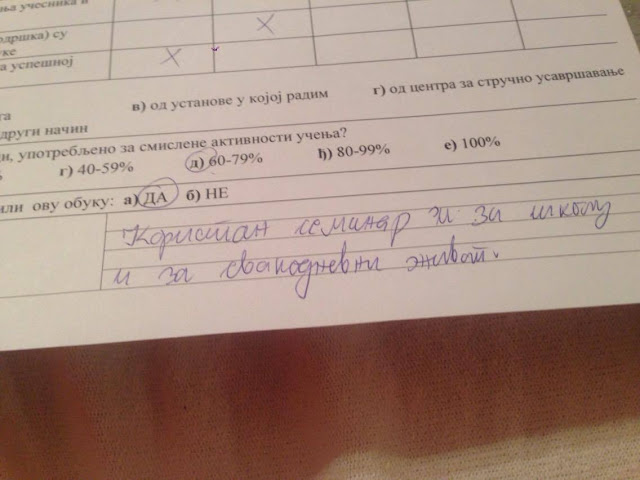 ња учесника и
одршка) су
уке X
а успешној X
та в) од установе у којој радим г) од центра за стручно усавршавање
други начин
ди, употребљено за смислене активности учења?
% г) 40-59% д) 60-79% ђ) 80-99% е) 100%
или ову обуку: а) ДА б) НЕ
Користан семинар и за школу
и за свакодневни живот.